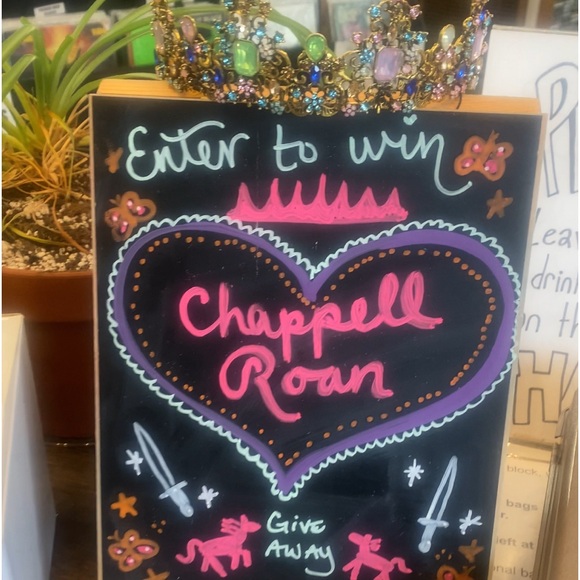 Enter to win
Chappell
Roan
Give
Away
Leav
drin
on th
block.
bags
r.
left at